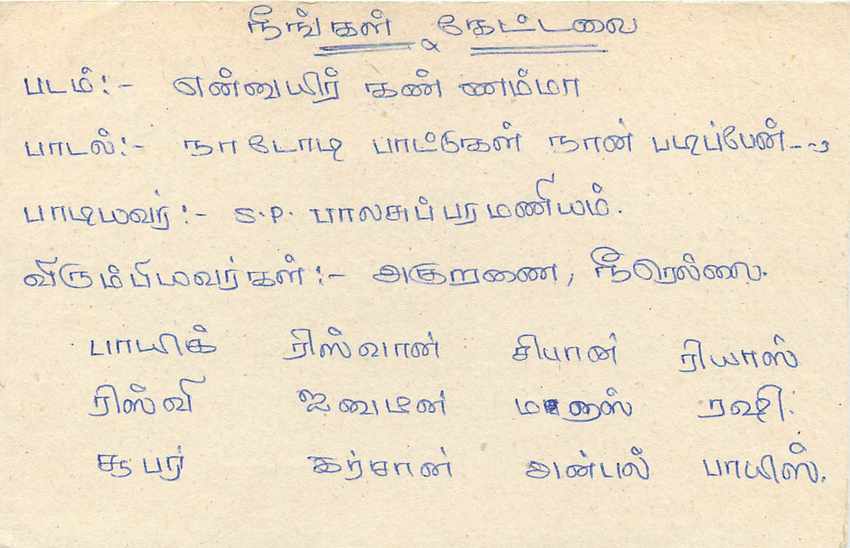 நீங்கள் கேட்டவை
படம்:- என்னுயிர் கண்ணம்மா
பாடல்:- நாடோடி பாட்டுகள் நான் படிப்பேன்--
பாடியவர்:- S.P. பாலசுப்பரமணியம்.
விரும்பியவர்கள்:- அகுறணை, நீரெல்ல.
பாயிக் ரிஸ்வான் சியான் ரியாஸ்
ரிஸ்வி ரஷி.
சூபர் கர்சான் அன்பல் பாயிஸ்.